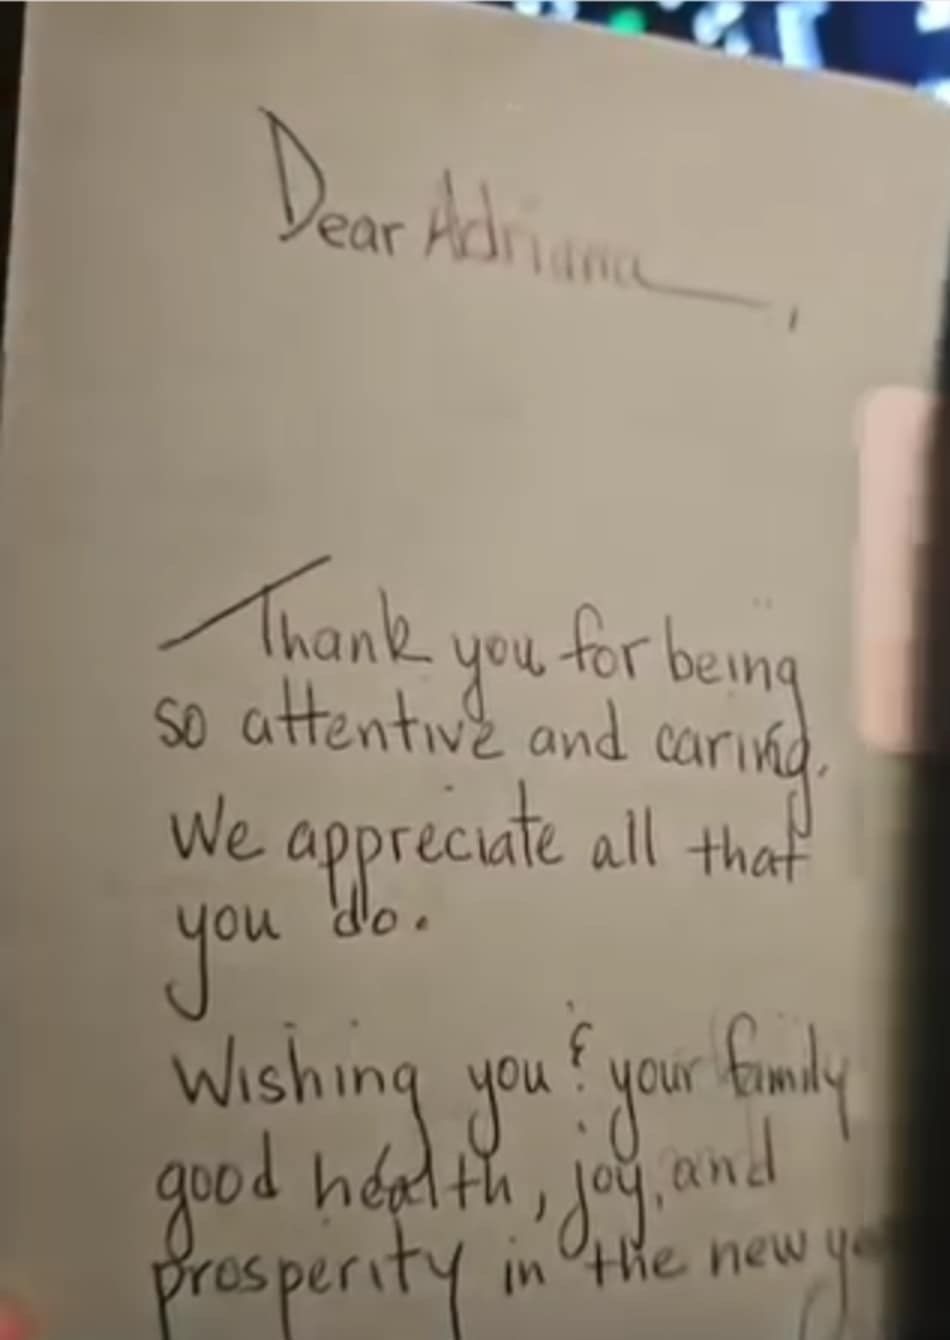 Dear Adriana,
Thank you for being
so attentive and caring.
We appreciate all that
you do.
Wishing you & your family
good health, joy, and
prosperity in the new